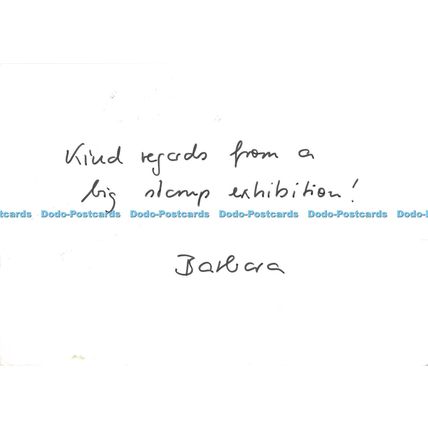 Kind regards from a
big stamp exhibition!
tcards Dodo-Postcards Dodo-Postcards Dodo-Postcards Dodo-Postcards Dodo-P
Barbara